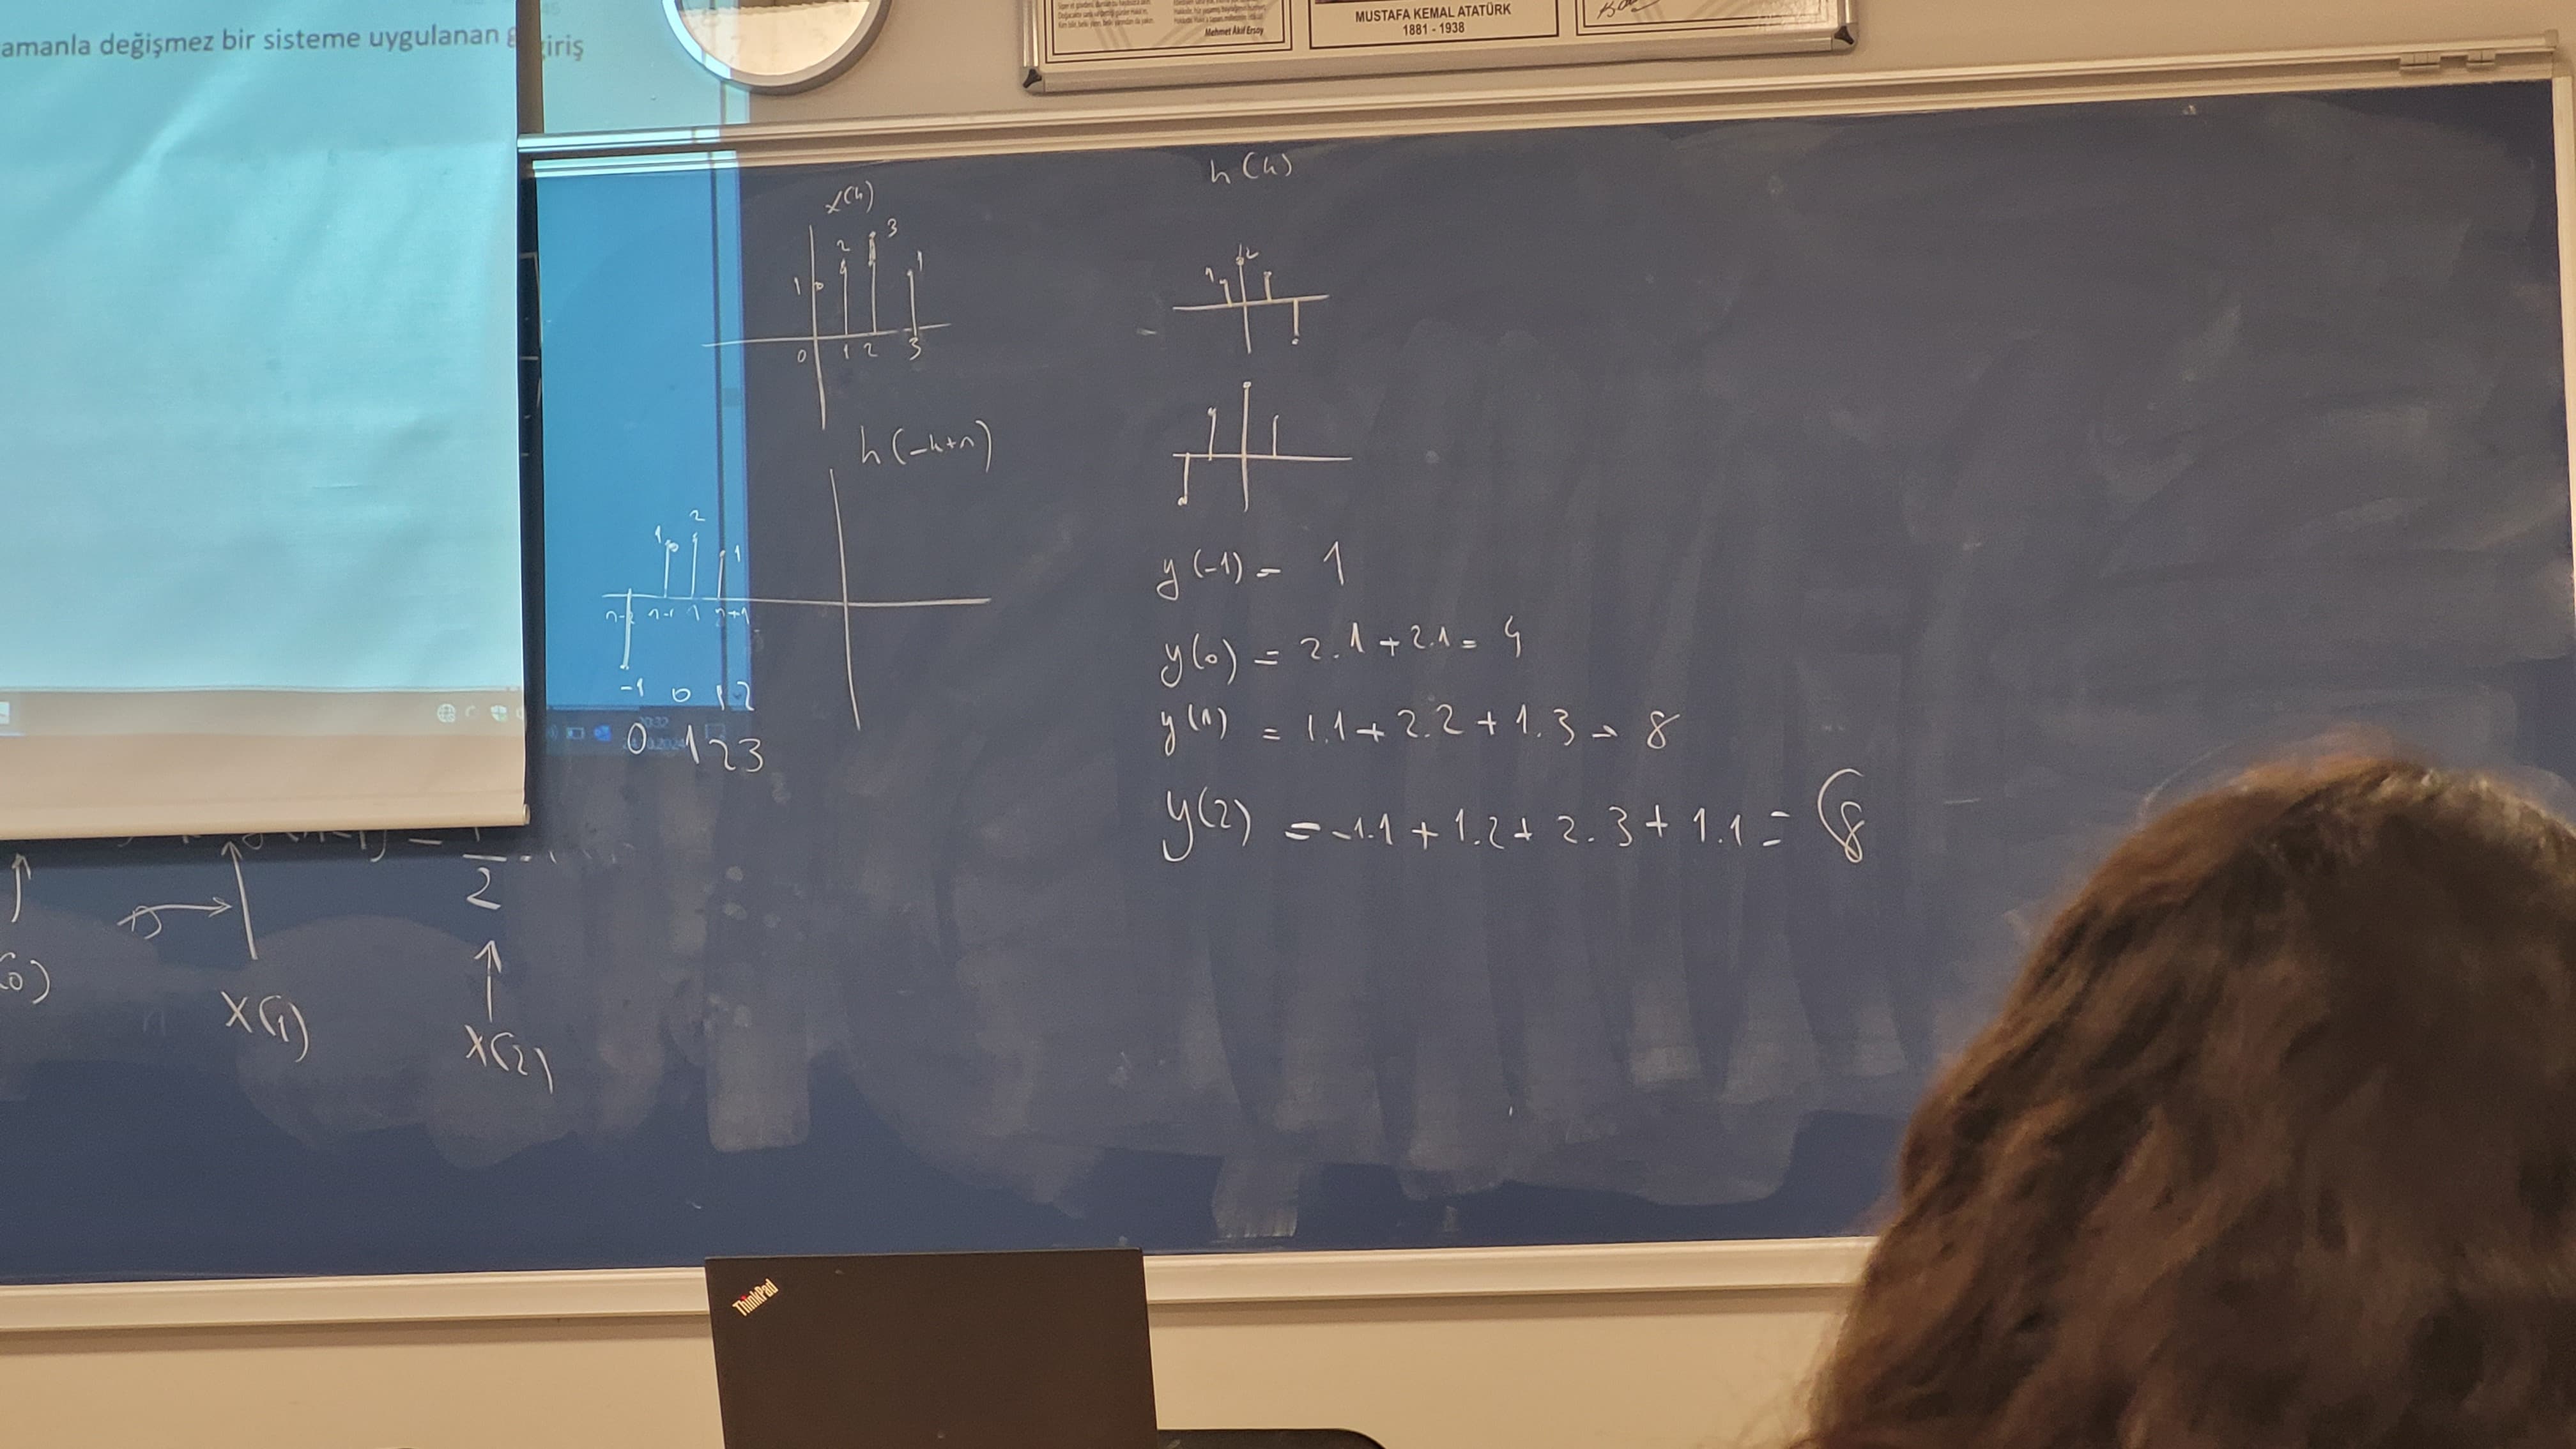 amanla değişmez bir sisteme uygulanan g
giriş
Mehmet Âkif Ersoy
MUSTAFA KEMAL ATATÜRK
1881 - 1938
x(k)
1 2 3 1
0 1 2 3
h(k)
1 2
h(-k+n)
1 2 1
n-2 n-1 n n+1
-1 0 1 2
0 1 2 3
y(-1) = 1
y(0) = 2.1 + 2.1 = 4
y(1) = 1.1 + 2.2 + 1.3 = 8
y(2) = -1.1 + 1.2 + 2.3 + 1.1 = 8
2
(0)
x(1)
x(2)
ThinkPad